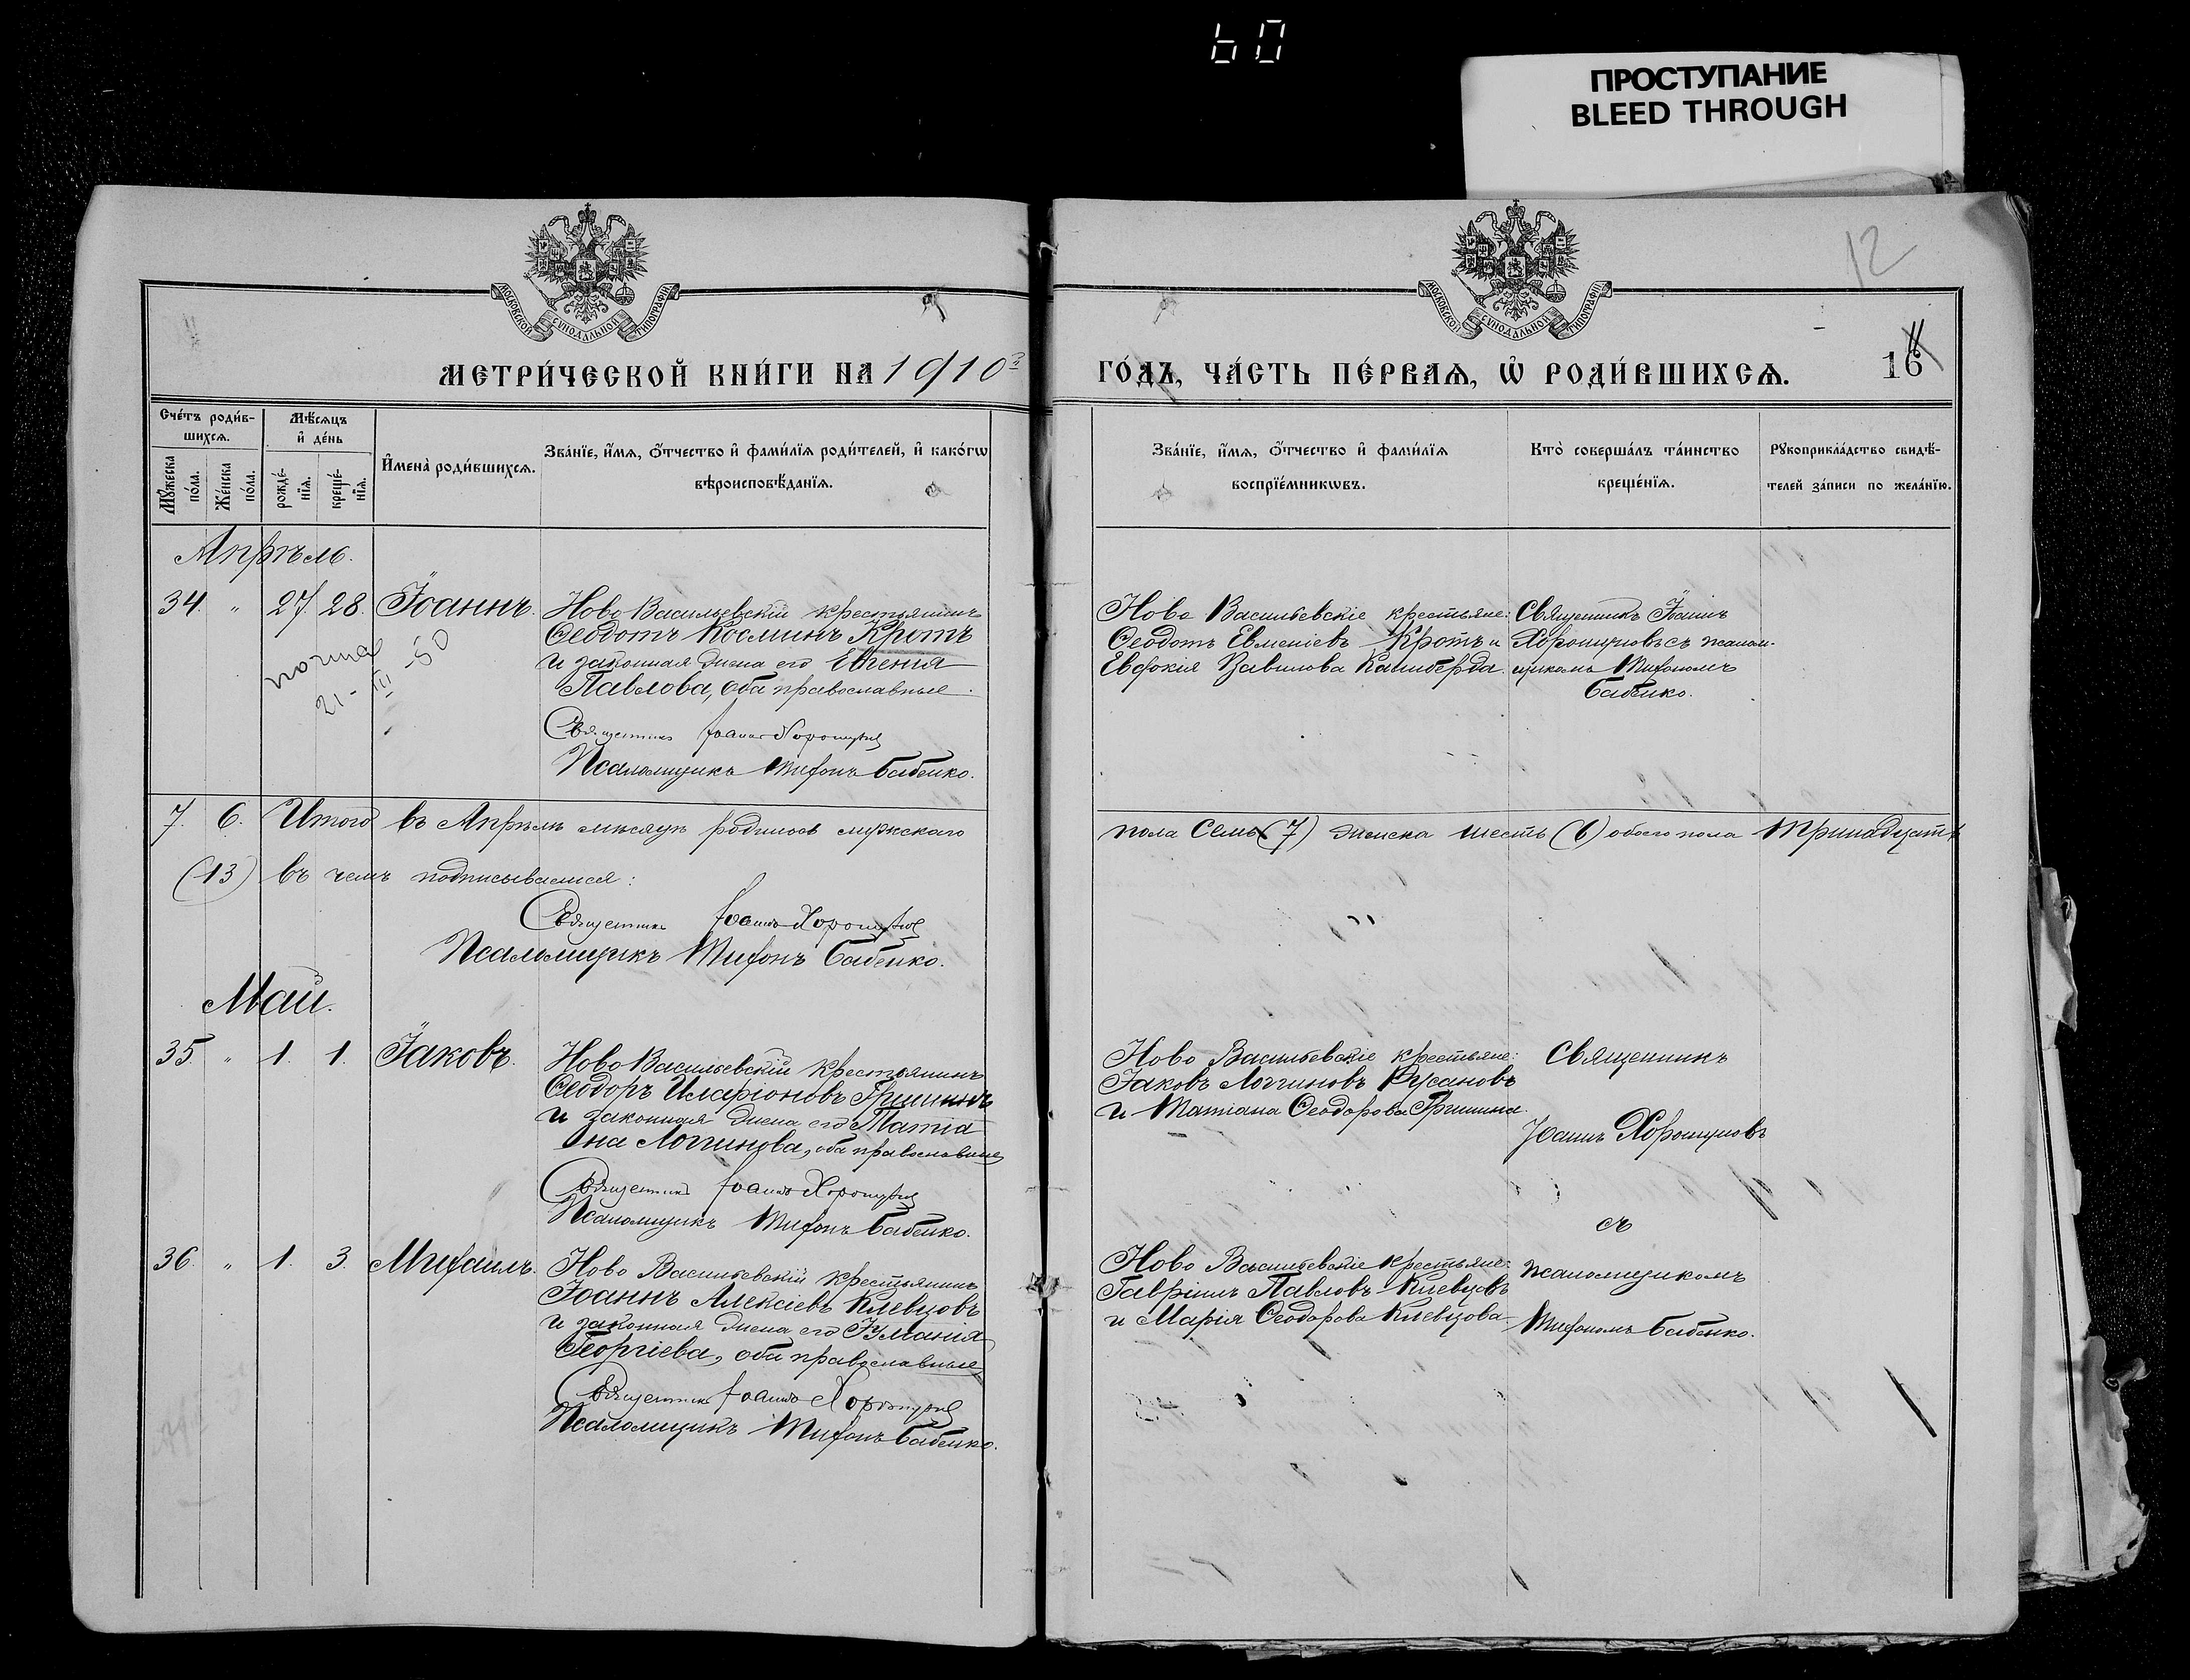 60
ПРОСТУПАНИЕ
BLEED THROUGH
МОСКОВСКОЙ СѴНОДАЛЬНОЙ ТИПОГРАФІИ
МОСКОВСКОЙ СѴНОДАЛЬНОЙ ТИПОГРАФІИ
12
МЕТРИ́ЧЕСКОЙ КНИ́ГИ НА 1910
ГО́ДЪ, ЧА́СТЬ ПЕ́РВАѦ, Ѡ҆ РОДИ́ВШИХСѦ.
16
Сче́тъ роди́в-
шихсѧ.
Мѣ́сѧцъ
и҆ де́нь
Мꙋ́жеска по́ла.
Же́нска по́ла.
рожде́-
нїѧ.
креще́-
нїѧ.
И҆мена̀ роди́вшихсѧ.
Зва́нїе, и҆́мѧ, ѻ҆́тчество и҆ фами́лїѧ роди́телей, и҆ како́гѡ
вѣроисповѣ́данїѧ.
Зва́нїе, и҆́мѧ, ѻ҆́тчество и҆ фами́лїѧ
воспрїе́мникѡвъ.
Кто̀ соверша́лъ та́инство
креще́нїѧ.
Рꙋкоприкла́дство свидѣ́-
телей за́писи по жела́нїю.
Апрѣль.
34. " 27. 28. Іоаннъ.
Ново Васильевскій крестьянинъ
Ѳеодотъ Косминъ Кротъ
и законная жена его Евгенія
Павлова, оба православные.
Священникъ Іоаннъ Хорошуновъ
Псаломщикъ Тифонъ Бабенко.
21-III-50
Ново Васильевскіе крестьяне:
Ѳеодотъ Евменіевъ Кротъ и
Евфокія Вавилова
Священникъ Іоаннъ
Хорошуновъ съ псалом-
щикомъ Тифономъ
Бабенко.
7. 6. Итого въ Апрѣлѣ мѣсяцѣ родилось мужскаго
пола семь (7) женска шесть (6) обоего пола тринадцать
(13) въ чемъ подписываемся:
Священникъ Іоаннъ Хорошуновъ
Псаломщикъ Тифонъ Бабенко.
Май.
35. " 1. 1. Іаковъ.
Ново Васильевскій крестьянинъ
Ѳеодоръ Иларіоновъ Гришинъ
и законная жена его Татіа
на Логгинова, оба православные
Священникъ Іоаннъ Хорошуновъ
Псаломщикъ Тифонъ Бабенко.
Ново Васильевскіе крестьяне:
Іаковъ Логгиновъ Русановъ
и Татіана Ѳеодорова Гришина.
Священникъ
Іоаннъ Хорошуновъ
съ
псаломщикомъ
Тифономъ Бабенко.
36. " 1. 3. Михаилъ.
Ново Васильевскій крестьянинъ
Іоаннъ Алексіевъ Клевцовъ
и законная жена его Іуліанія
Георгіева, оба православные
Священникъ Іоаннъ Хорошуновъ
Псаломщикъ Тифонъ Бабенко.
Ново Васильевскіе крестьяне:
Гавріилъ Павловъ Клевцовъ
и Марія Ѳеодорова Клевцова.